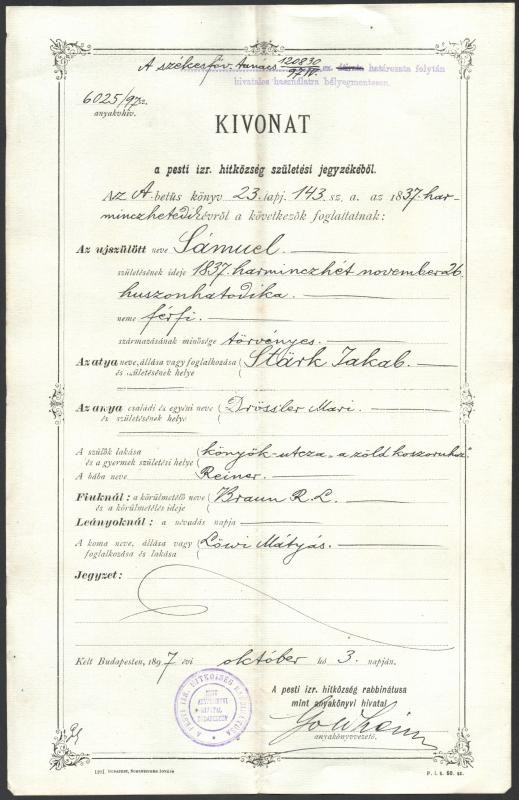 A székesföv. tanács 120830/97 IV. sz. határozata folytán
hivatalos használatra bélyegmentesen.
6025/97 sz.
anyakvhiv.
KIVONAT
a pesti izr. hitközség születési jegyzékéből.
Az A. betüs könyv 23. lapj. 143. sz. a. az 1837. har-
minczhetedik évről a következők foglaltatnak:
Az ujszülött neve Sámuel.
születésének ideje 1837. harminczhét november 26.
huszonhatodika.
neme férfi.
származásának minősége törvényes.
Az atya neve, állása vagy foglalkozása és születésének helye Stärk Jakab.
Az anya családi és egyéni neve és születésének helye Drössler Mari.
A szülők lakása és a gyermek születési helye könyök-utcza „a zöld koszoruhoz"
A bába neve Reiner.
Fiuknál: a körülmetélő neve és a körülmetélés ideje Braun R. L.
Leányoknál: a névadás napja
A koma neve, állása vagy foglalkozása és lakása Löwi Mátyás.
Jegyzet:
Kelt Budapesten, 1897 évi október hó 3. napján.
A pesti izr. hitközség rabbinátusa
mint anyakönyvi hivatal
anyakönyvvezető.
A PESTI IZR. HITKÖZSÉG RABBINÁTUSA
MINT ANYAKÖNYVI HIVATAL BUDAPESTEN
P. i. k. 60. sz.